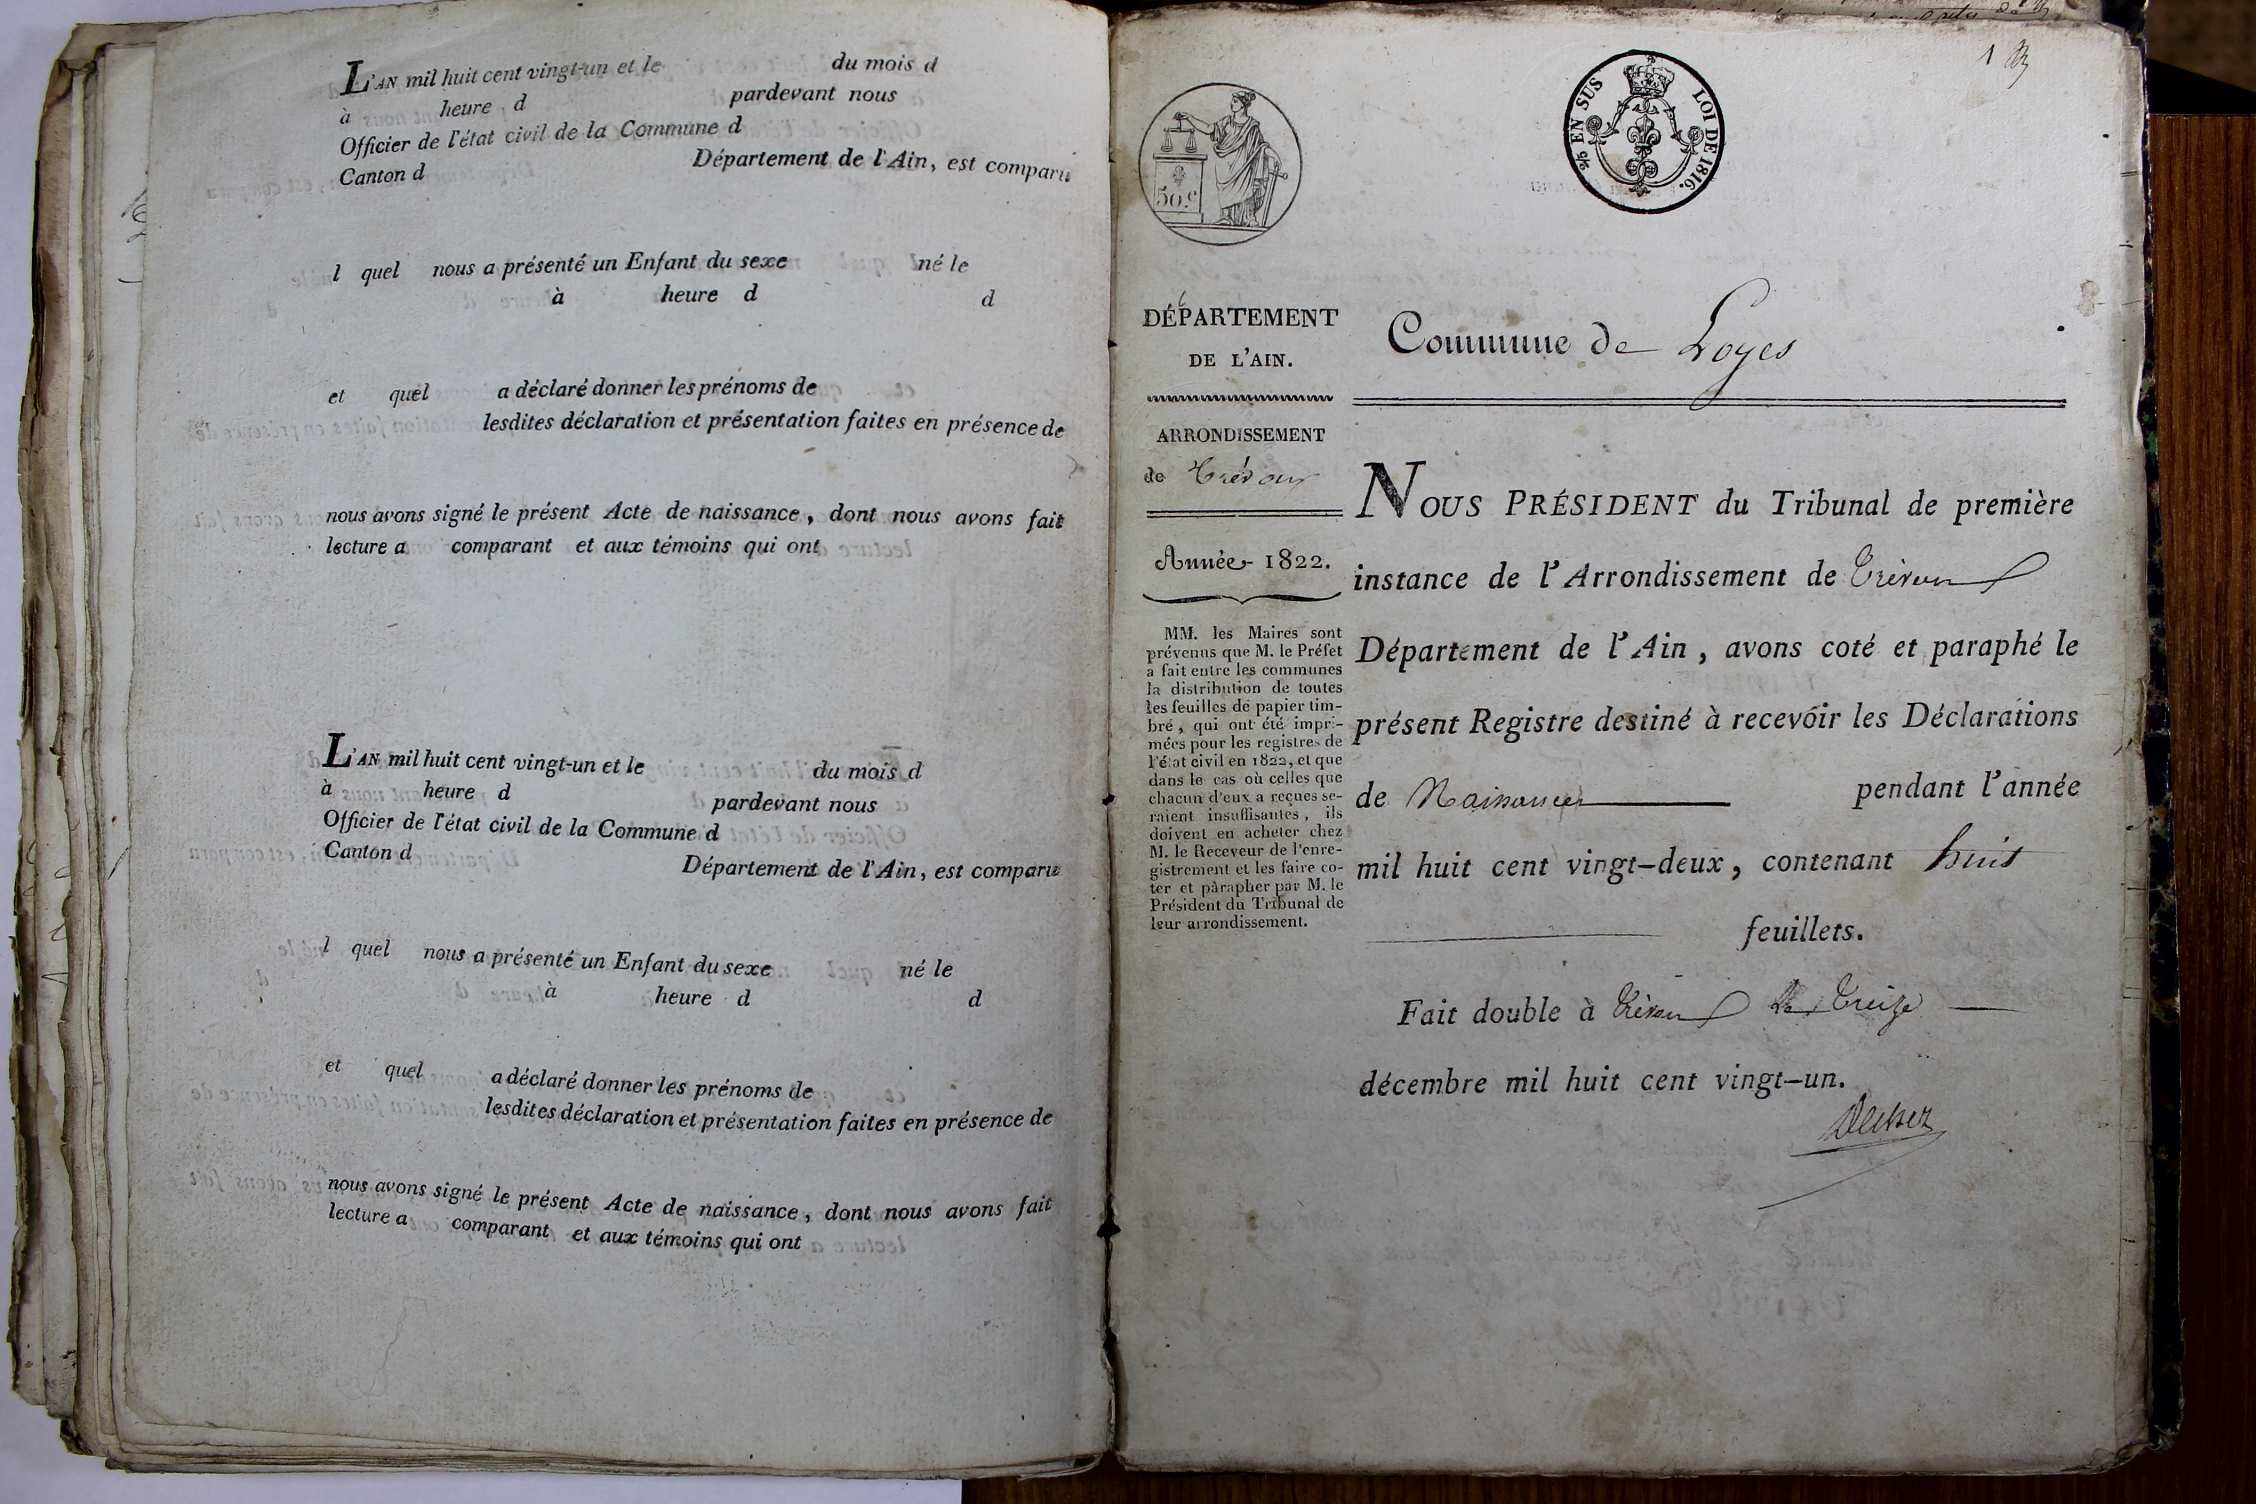 L'AN mil huit cent vingt-un et le du mois d
à heure d pardevant nous
Officier de l'état civil de la Commune d
Canton d Département de l'Ain, est comparu
l quel nous a présenté un Enfant du sexe né le
à heure d d
et quel a déclaré donner les prénoms de
lesdites déclaration et présentation faites en présence de
nous avons signé le présent Acte de naissance, dont nous avons fait
lecture a comparant et aux témoins qui ont
L'AN mil huit cent vingt-un et le du mois d
à heure d pardevant nous
Officier de l'état civil de la Commune d
Canton d Département de l'Ain, est comparu
l quel nous a présenté un Enfant du sexe né le
à heure d d
et quel a déclaré donner les prénoms de
lesdites déclaration et présentation faites en présence de
nous avons signé le présent Acte de naissance, dont nous avons fait
lecture a comparant et aux témoins qui ont
1
50.c
EN SUS LOI DE 1816.
DÉPARTEMENT
DE L'AIN.
ARRONDISSEMENT
de Trévoux
Année 1822.
MM. les Maires sont
prévenus que M. le Préfet
a fait entre les communes
la distribution de toutes
les feuilles de papier tim-
bré, qui ont été impri-
mées pour les registres de
l'état civil en 1822, et que
dans le cas où celles que
chacun d'eux a reçues se-
raient insuffisantes, ils
doivent en acheter chez
M. le Receveur de l'enre-
gistrement et les faire co-
ter et parapher par M. le
Président du Tribunal de
leur arrondissement.
Commune de Loyes
NOUS PRÉSIDENT du Tribunal de première
instance de l'Arrondissement de Trévoux
Département de l'Ain, avons coté et paraphé le
présent Registre destiné à recevoir les Déclarations
de Naissances pendant l'année
mil huit cent vingt-deux, contenant huit
feuillets.
Fait double à Trévoux Le Treize
décembre mil huit cent vingt-un.